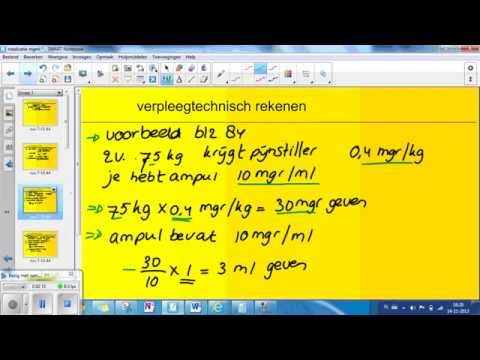 medicatie mgmt * - SMART Notebook
Bestand Bewerken Weergave Invoegen Opmaak Hulpmiddelen Toevoegingen Help
verpleegtechnisch rekenen
→ voorbeeld blz 84
zv. 75 kg krijgt pijnstiller 0,4 mgr/kg
je hebt ampul 10 mgr/ml
⇒ 75 kg x 0,4 mgr/kg = 30 mgr geven
⇒ ampul bevat 10 mgr/ml
- 30/10 x 1 = 3 ml geven
NL
16:20
14-11-2013